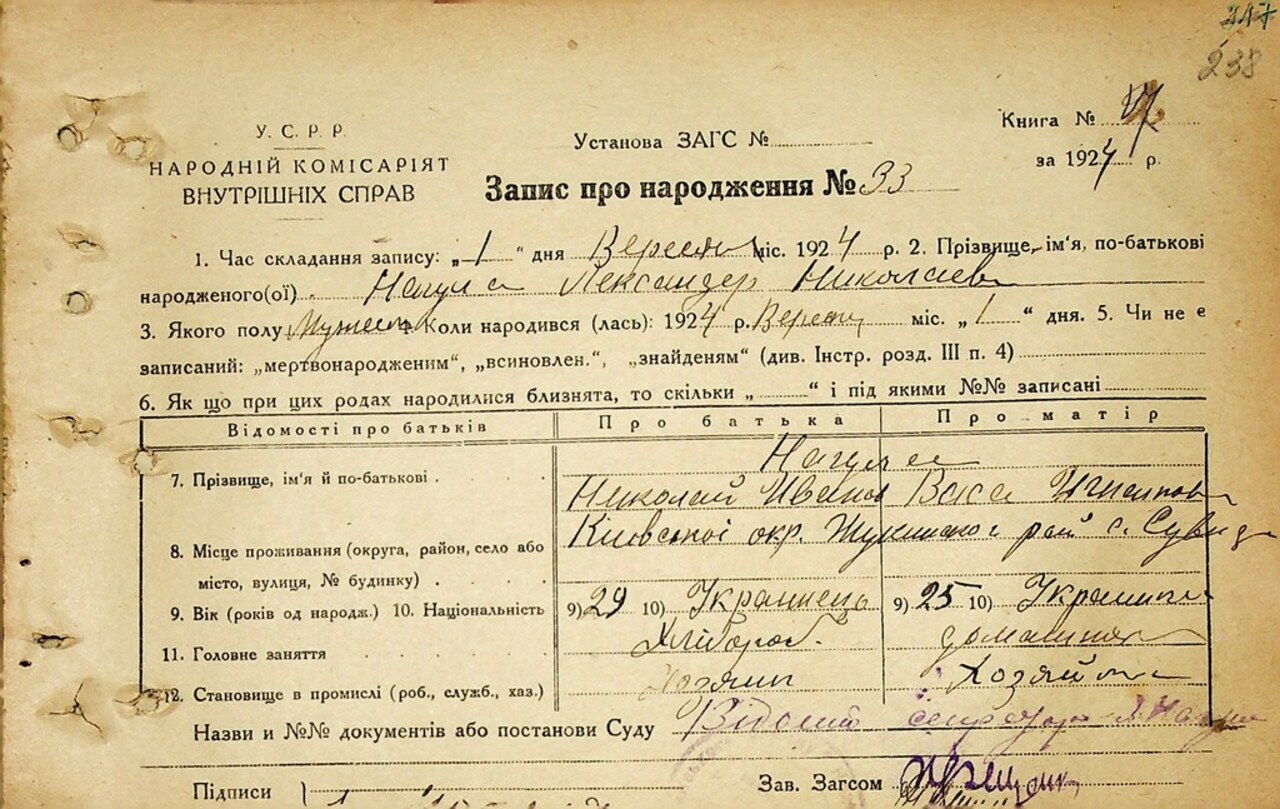 238
У. С. Р. Р.
НАРОДНІЙ КОМІСАРІЯТ
ВНУТРІШНІХ СПРАВ
Установа ЗАГС №
Книга №
за 1924 р.
Запис про народження № 33
1. Час складання запису: „1“ дня Вересня міс. 1924 р. 2. Прізвище, ім'я, по-батькові
народженого(ої) Нагула Александер Николаев
3. Якого полу Мужеск 4. Коли народився (лась): 1924 р. Вересня міс. „1“ дня. 5. Чи не є
записаний: „мертвонародженим“, „всиновлен.“, „знайденям“ (див. Інстр. розд. III п. 4)
6. Як що при цих родах народилися близнята, то скільки „ “ і під якими №№ записані
Відомості про батьків Про батька Про матір
7. Прізвище, ім'я й по-батькові
Николай Иванов
8. Місце проживання (округа, район, село або
місто, вулиця, № будинку)
Київської окр. рай с.
9. Вік (років од народж.) 10. Національність 9) 29 10) Українець 9) 25 10) Українка
11. Головне заняття Хлібороб. домашня
12. Становище в промислі (роб., служб., хаз.) Хозяин Хозяйка
Назви и №№ документів або постанови Суду
Зав. Загсом
Підписи